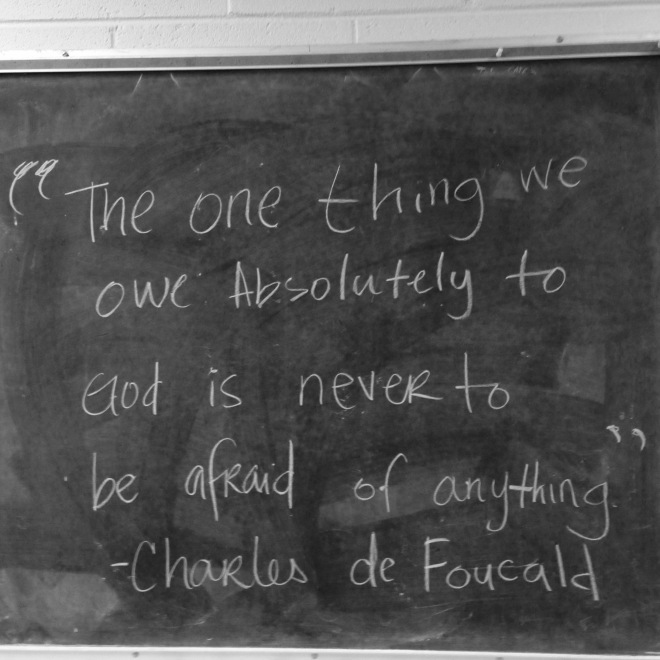 "The one thing we
owe Absolutely to
God is never to
be afraid of anything"
-Charles de Foucald